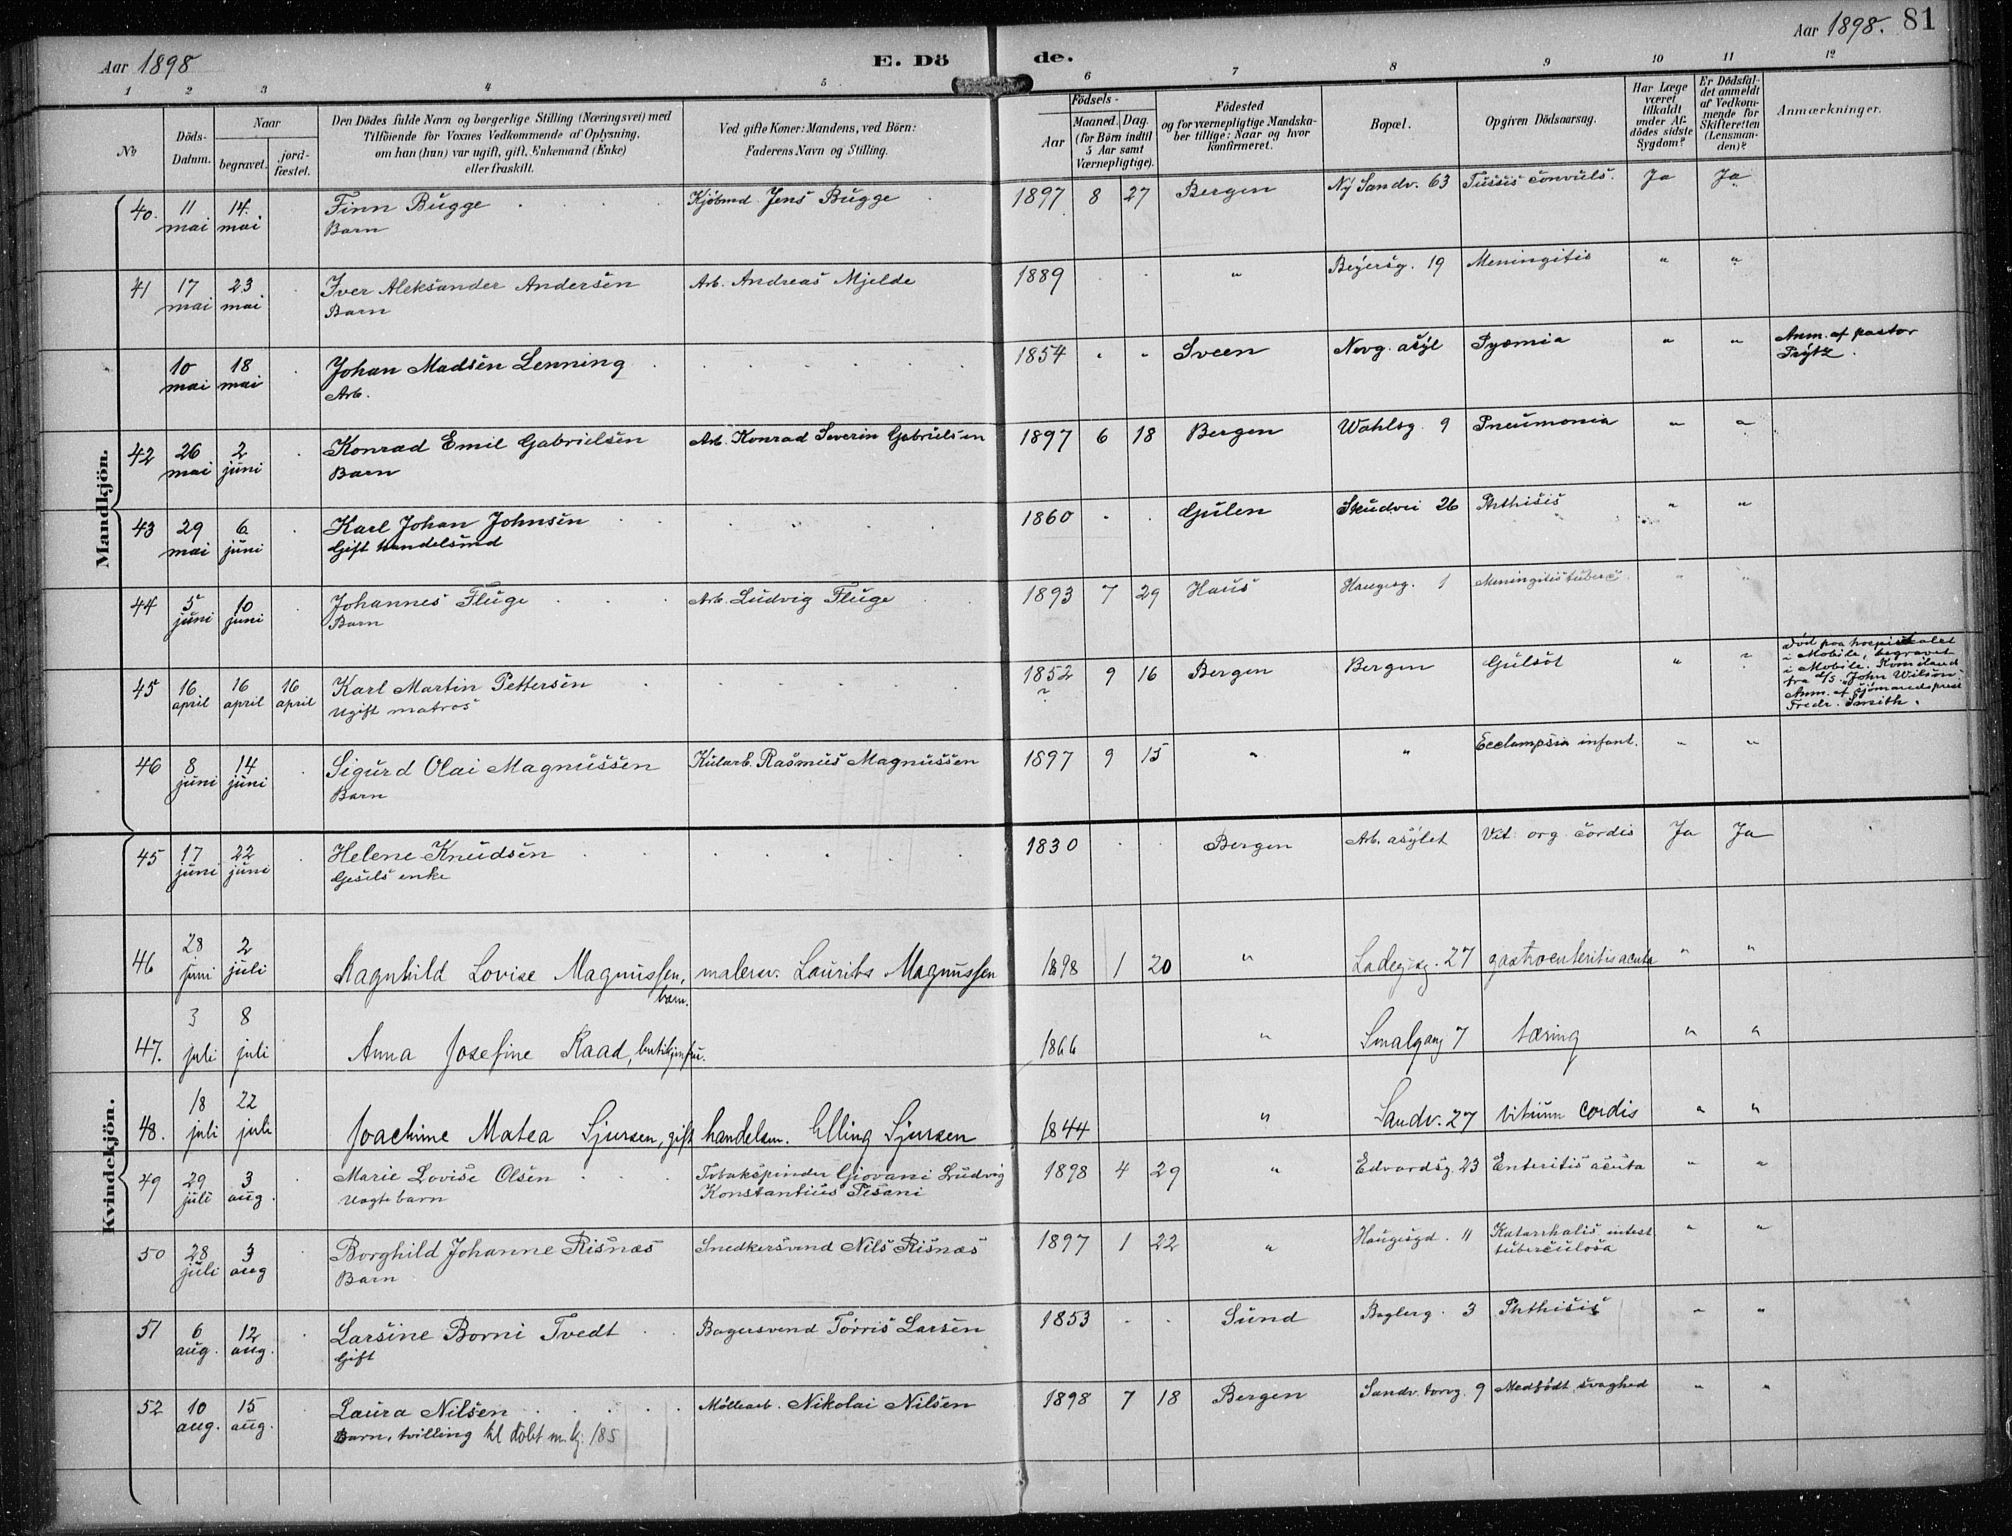 Aar 1898
E. Dö
de.
Aar 1898.
81
1 2 3 4 5 6 7 8 9 10 11 12
No
Döds-Datum.
Naar
begravet.
jordfæstet.
Den Dödes fulde Navn og borgerlige Stilling (Næringsvei) med
Tilföiende for Voxnes Vedkommende af Oplysning,
om han (hun) var ugift, gift, Enkemand (Enke)
eller fraskilt.
Ved gifte Koner: Mandens, ved Börn:
Faderens Navn og Stilling.
Födsels-
Aar
Maaned. Dag.
(for Börn indtil
5 Aar samt
Værnepligtige).
Födested
og for værnepligtige Mandska-
ber tillige: Naar og hvor
konfirmeret.
Bopæl.
Opgiven Dödsaarsag.
Har Læge
været
tilkaldt
under Af-
dödes sidste
Sygdom?
Er Dödsfal-
det anmeldt
af Vedkom-
mende for
Skifteretten
(Lensman-
den)?
Anmærkninger.
Mandkjön.
40. 11 mai 14. mai Finn Bugge Kjöbmd Jens Bugge 1897 8 27 Bergen Ny Sandv. 63 Tussis convuls. Ja Ja
Barn
41 17 mai 23 mai Iver Aleksander Andersen Arb. Andreas Mjelde 1889 " Beyersg. 19 Meningitis " "
Barn
10 mai 18 mai Johan Madsen Lenning 1854 Sveen Norg. asyl Pyæmia " " Anm. af pastor
Arb. Prytz.
42 26 mai 2 juni Konrad Emil Gabrielsen Arb. Konrad Severin Gabrielsen 1897 6 18 Bergen Wahlsg. 9 Pneumonia " "
Barn
43 29 mai 6 juni Karl Johan Johnsen 1860 Gulen Skudvi 26 Phthisis " "
Gift handelsmd
44 5 juni 10 juni Johannes Fluge Arb. Ludvig Fluge 1893 7 29 Haus Haugesg. 1 Meningitis tuberc. " "
Barn
45 16 april 16 april 16 april Karl Martin Pettersen 1852 9 16 Bergen Bergen Gulsot " "
Ugift matros
Död paa hospitalet
i Mobile, begravet
i Mobile. Kom iland
fra d/s. John Wilson.
Anm. af sjömandsprest
Fredr. Smith.
46 8 juni 14 juni Sigurd Olai Magnussen Kularb. Rasmus Magnussen 1897 9 15 " " Ecclampsia infant. " "
Barn
Kvindekjön.
45 17 juni 22 juni Helene Knudsen 1830 Bergen Arb. asylet Vit. org. cordis Ja Ja
Gesels enke
46 28 juni 2 juli Ragnhild Lovise Magnussen, malersv. Laurits Magnussen 1898 1 20 " Ladegsg. 27 gastroenteritis acuta " "
barn.
47. 3 juli 8 juli Anna Josefine Raad, butikjomfru. 1866 " Smalgang 7 tæring " "
48. 18 juli 22 juli Joachime Matea Sjursen, gift handelsm. Elling Sjursen 1844 " Sandv. 27 Vitium cordis " "
49 29 juli 3 aug. Marie Lovise Olsen Tobakspinder Giovani Ludvig 1898 4 29 " Edvardsg. 23 Enteritis acuta " "
Uægte barn Konstantius Pesani
50 28 juli 3 aug Borghild Johanne Risnæs Snedkersvend Nils Risnæs 1897 1 22 " Haugesgd. 11 Katarrhalis intest " "
Barn tuberculosa
51 6 aug. 12 aug. Larsine Borni Tvedt Bagersvend Torris Larsen 1853 Sund Baglerg. 3 Phthisis " "
Gift
52 10 aug. 15 aug. Laura Nilsen Möllearb. Nikolai Nilsen 1898 7 18 Bergen Sandv. torvg. 9 Medfödt svaghed " "
Barn, tvilling til döbt m. kj. 185